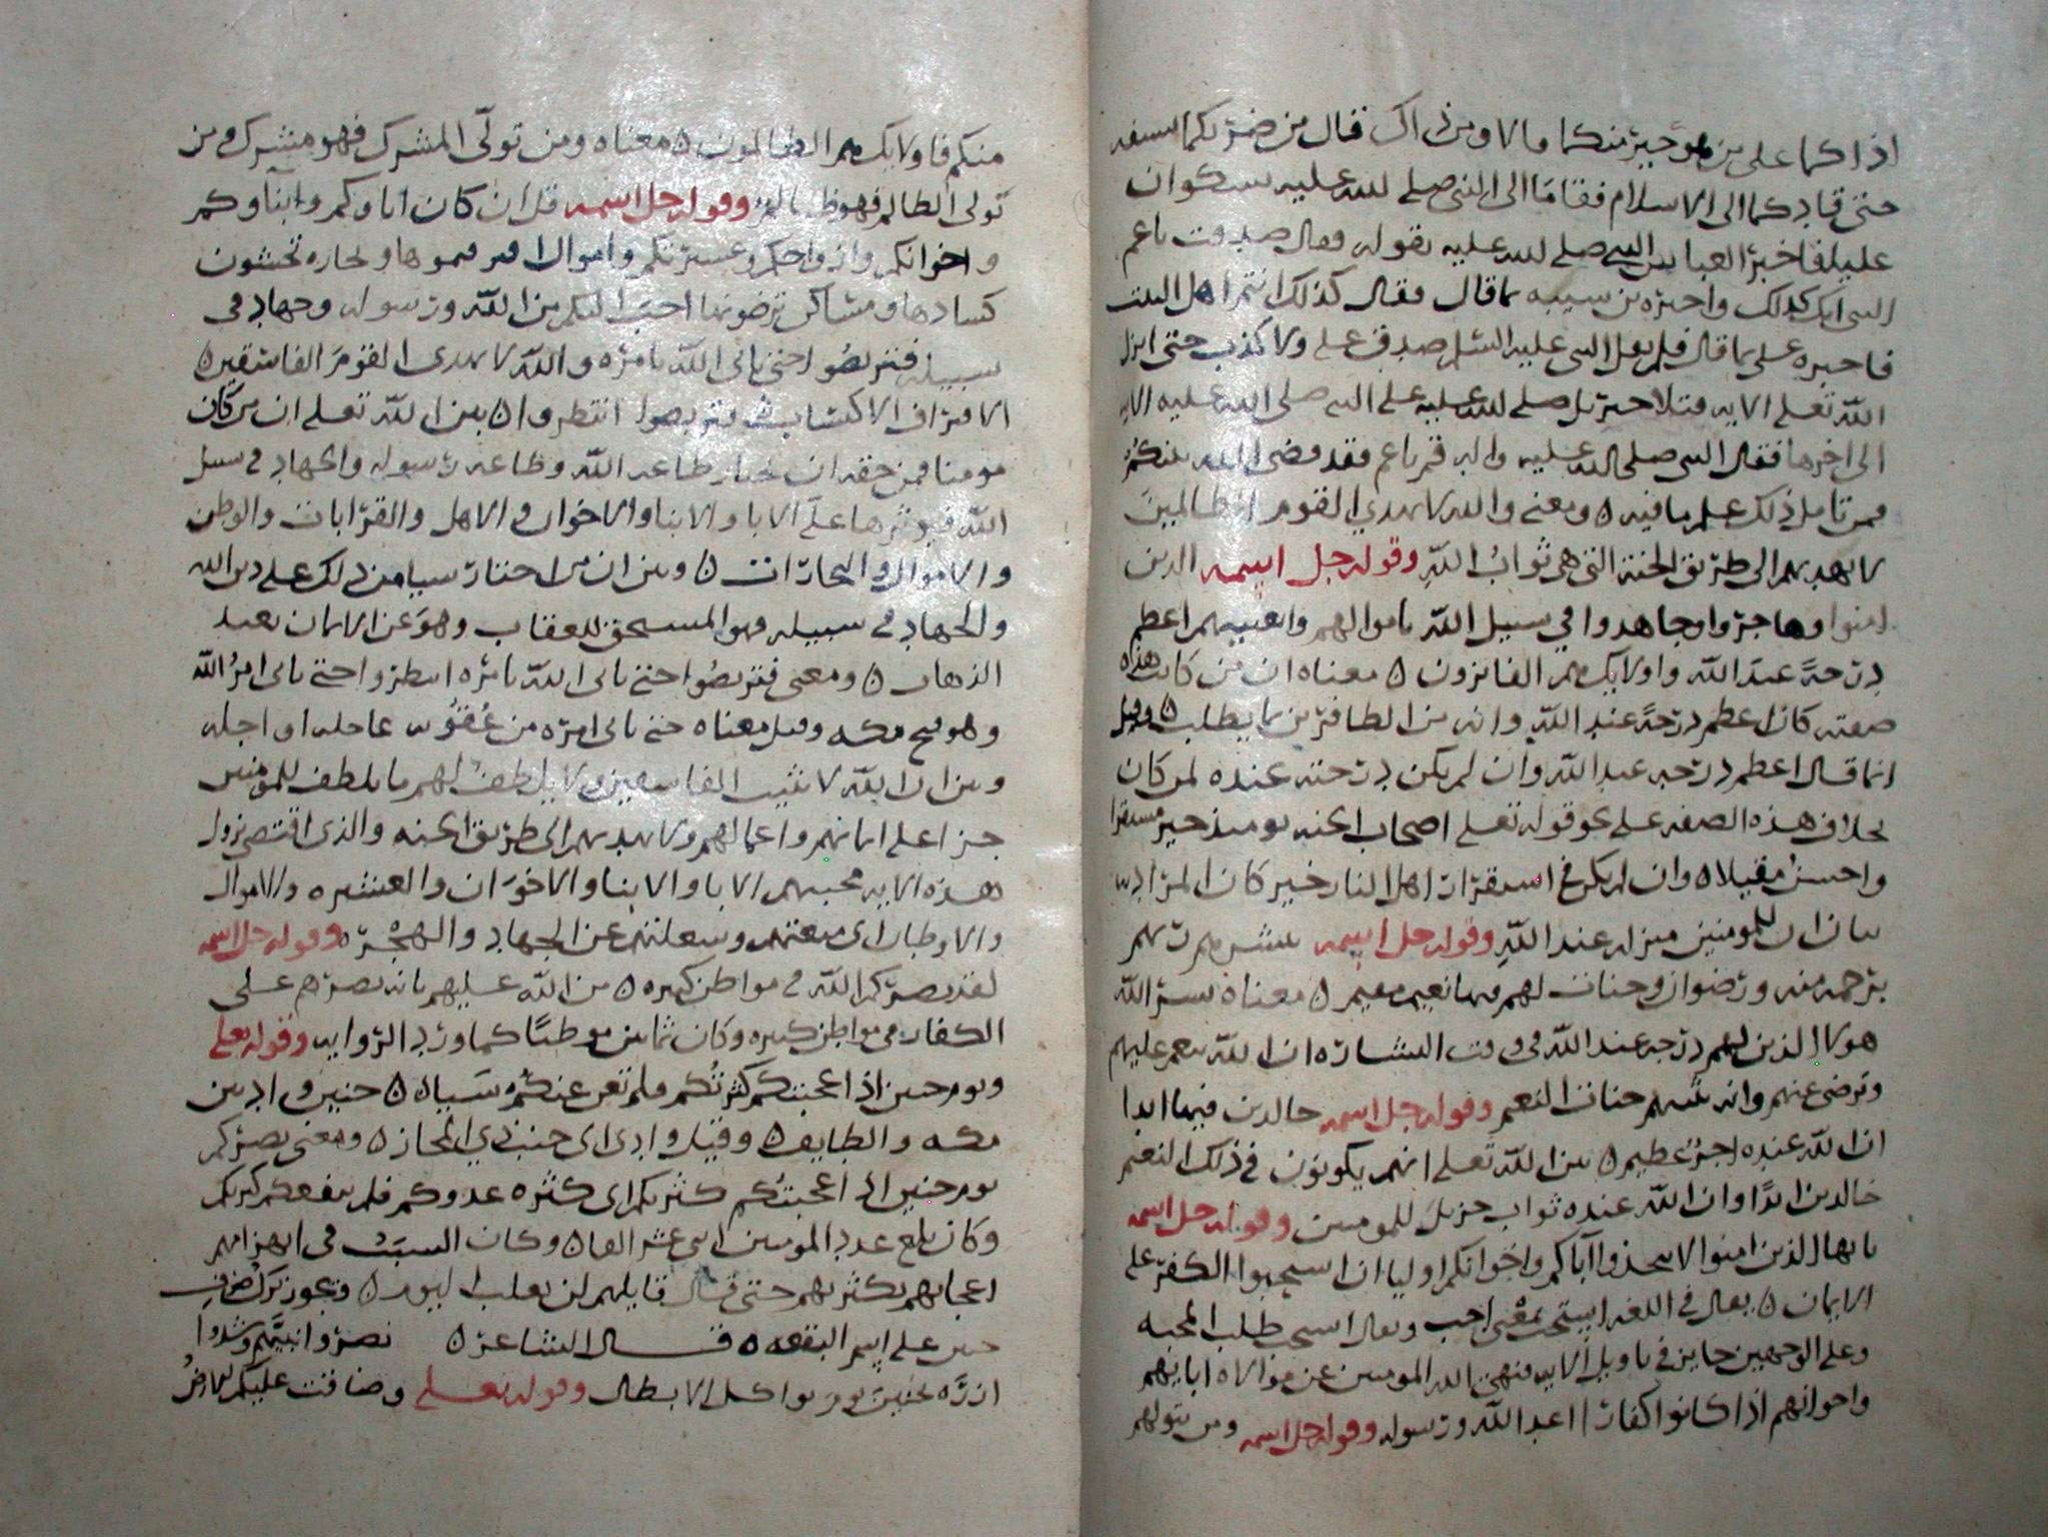 اذا كما على من هو خير منكما قالا ومن ذاك قال من ضربكما بالسيفه
حتى قادكما الى الاسلام فقاما الى النبي صلى الله عليه يشكوان
عليا فاخبر العباس النبي صلى الله عليه بقوله فقال صدقت يا عم
فاخبره على بما قال فلم يقل النبي عليه السلم صدق علي ولا كذب حتى انزل
الله تعلى الايه فتلا جبريل صلى الله عليه على النبي صلى الله عليه الايه
الى اخرها فقال النبي صلى الله عليه واله قم يا عم فقد قضى الله بينكم
فمن تامل ذلك علم ما فيه ٥ ومعنى والله لا يهدي القوم الظالمين
لا يهديهم الى طريق الجنة التي هي ثواب الله وقوله جل اسمه الذين
امنوا وهاجروا وجاهدوا في سبيل الله باموالهم وانفسهم اعظم
درجة عند الله واولايك هم الفايزون ٥ معناه ان من كانت هذه
صفته كان اعظم درجة عند الله وانه من الظافرين بما يطلب ٥ وقيل
انما قال اعظم درجه عند الله وان لم يكن درجته عنده لمن كان
بخلاف هذه الصفه على نحو قوله تعلى اصحاب الجنه يوميذ خير مستقرا
واحسن مقيلا ٥ وان لم يكن في استقرار اهل النار خير كان المراد به
بيان ان للمومنين منزله عند الله وقوله جل اسمه يبشرهم ربهم
برحمه منه ورضوان وجنات لهم فيها نعيم مقيم ٥ معناه يسر الله
هولا الذين لهم درجه عند الله في وقت البشاره ان الله ينعم عليهم
وترضى عنهم وانه يثيبهم جنات النعيم وقوله جل اسمه خالدين فيها ابدا
ان الله عنده اجر عظيم ٥ بين الله تعلى انهم يكونون في ذلك النعيم
خالدين ابدًا وان الله عنده ثواب جزيل للمومنين وقوله جل اسمه
يايها الذين امنوا لا تتخذوا آباكم واخوانكم اوليا ان استحبوا الكفر على
الايمان ٥ يقال في اللغه استحب بمعنى احب ويقال استحب طلب المحبه
وعلى الوجهين جايز في تاويل الايه فنهى الله المومنين عن موالاه ابايهم
واخوانهم اذا كانوا كفارا اعدا الله ورسوله وقوله جل اسمه ومن يتولهم
منكم فاولايك هم الظالمون ٥ معناه ومن تولى المشرك فهو مشرك ومن
تولى الظالم فهو ظالم وقوله جل اسمه قل ان كان اباوكم وابناوكم
واخوانكم وازواجكم وعشيرتكم واموال اقترفتموها وتجاره تخشون
كسادها ومساكن ترضونها احب اليكم من الله ورسوله وجهاد في
سبيله فتربصوا حتى ياتى الله بامره والله لا يهدى القوم الفاسقين ٥
الاقتراف الاكتساب وتربصوا انتظروا ٥ بين الله تعلى ان من كان
مومنا فمن حقه ان يختار طاعه الله وطاعه رسوله والجهاد في سبيل
الله فيوثرها على الابا والابنا والاخوان والاهل والقرابات والوطن
والاموال والتجارات ٥ وبين ان من اختار شيا من ذلك على دين الله
والجهاد في سبيله فهو المستحق للعقاب وهو عن الايمان بعيد
الذهاب ٥ ومعنى فتربصوا حتى ياتى الله بامره انتظروا حتى ياتى امر الله
وهو فتح مكه وقيل معناه حتى ياتى امره من عقوبه عاجله او اجله
وبين ان الله لا يثيب الفاسقين ولا يلطف لهم ما يلطف للمومنين
جزا على ايمانهم واعمالهم ولا يهديهم الى طريق الجنه والذى اقتضى نزول
هذه الايه محبتهم الابا والابنا والاخوان والعشيره والاموال
والاوطان التى منعتهم وشغلتهم عن الجهاد والهجره وقوله جل اسمه
لقد نصركم الله في مواطن كثيره ٥ من الله عليهم بانه نصرهم على
الكفار في مواطن كثيره وكان ثمانين موطنًا كما ورد الروايه وقوله تعلى
ويوم حنين اذ اعجبتكم كثرتكم فلم تغن عنكم شيا ٥ حنين واد بين
مكه والطايف ٥ وقيل وادى الى جنب ذي المجاز ٥ ومعنى نصركم
يوم حنين اذ اعجبتكم كثرتكم اى كثره عددكم فلم ينفعكم كثرتكم
وكان بلغ عدد المومنين اثنى عشر الفا ٥ وكان السبب في انهزامهم
اعجابهم بكثرتهم حتى قال قايلهم لن نغلب اليوم ٥ وتجوز ترك صرف
حنين على اسم البقعه ٥ قال الشاعر ٥ نصروا نبيهم وشدوا
ازره بحنين يوم تواكل الابطال وقوله تعلى وضاقت عليكم الارض